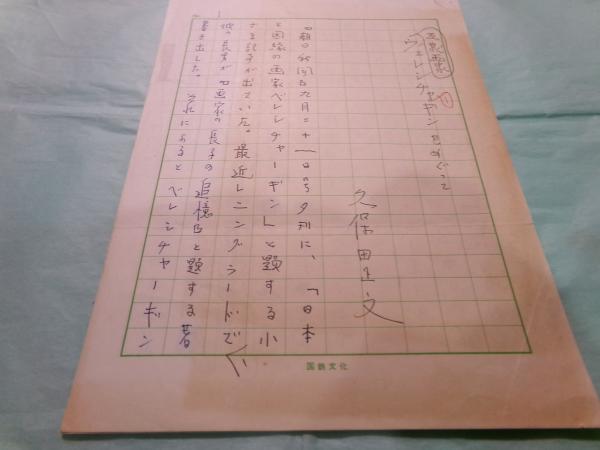 画家
ヴェレシチャギンをめぐって
久保田正文
朝日新聞五九月二十一日号夕刊に、「日本
と因縁の画家ベレシチャーギン」と題する小
さな記事が出ていた。最近レニングラードで
彼の長男が『画家の長子の追憶』と題する著
書を出した。それによるとベレシチャーギン
国鉄文化